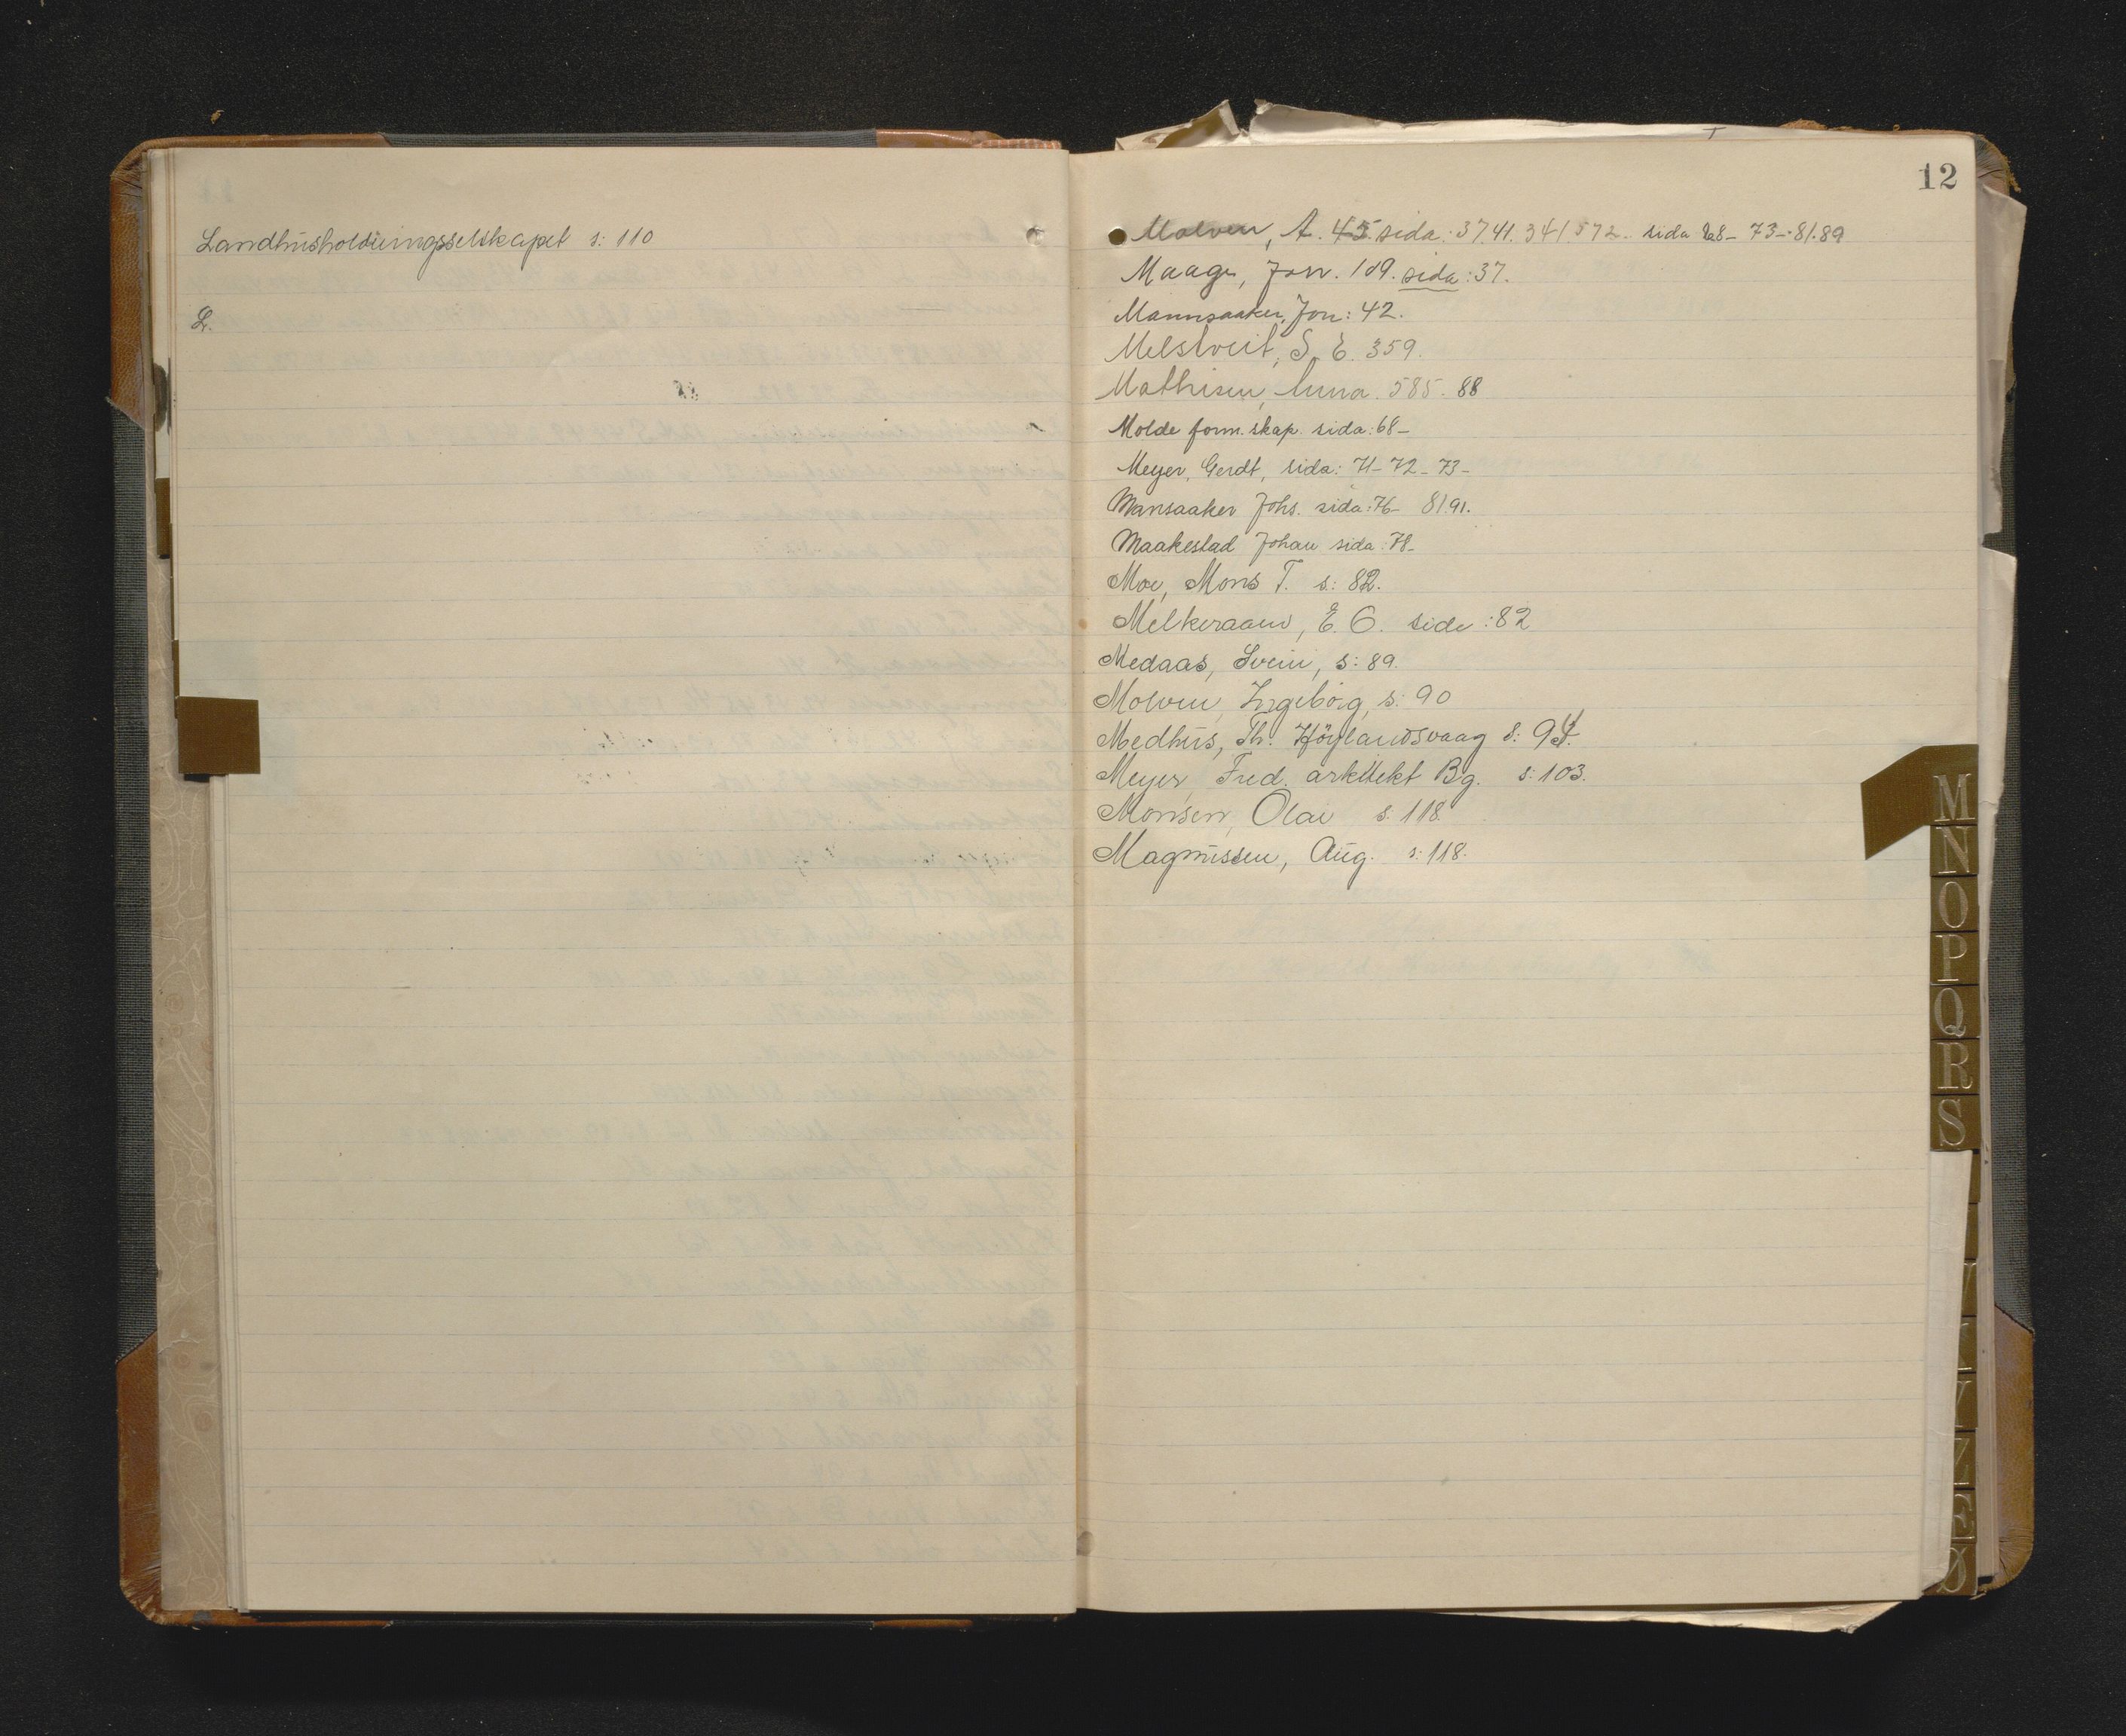 Landhusholdningsselskapet s: 110
L.
12
Molven, A. 45. sida: 37.41. 341 572. sida 68- 73-.81.89
Maage, Jon. 109. sida: 37.
Mannsaaker, Jon: 42.
Melstveit, S. E. 359.
Mathisen, Anna. 585. 88
Molde form. skap. sida: 68-
Meyer, Gerdt, sida: 71- 72- 73-
Mansaaker Johs. sida: 76- 81.91.
Maakestad Johan sida: 78-
Moe, Mons T. s: 82.
Melkeraaen, E. O. side: 82
Medaas, Svein, s: 89.
Molven, Ingeborg, s: 90
Medhus, Th. Höylandsvaag s: 94.
Meyer, Fred. arkitekt Bg. s: 103.
Monsen, Olav s. 118.
Magnussen, Aug. s: 118.
M
N
O
P
Q
R
S
Z
Ø